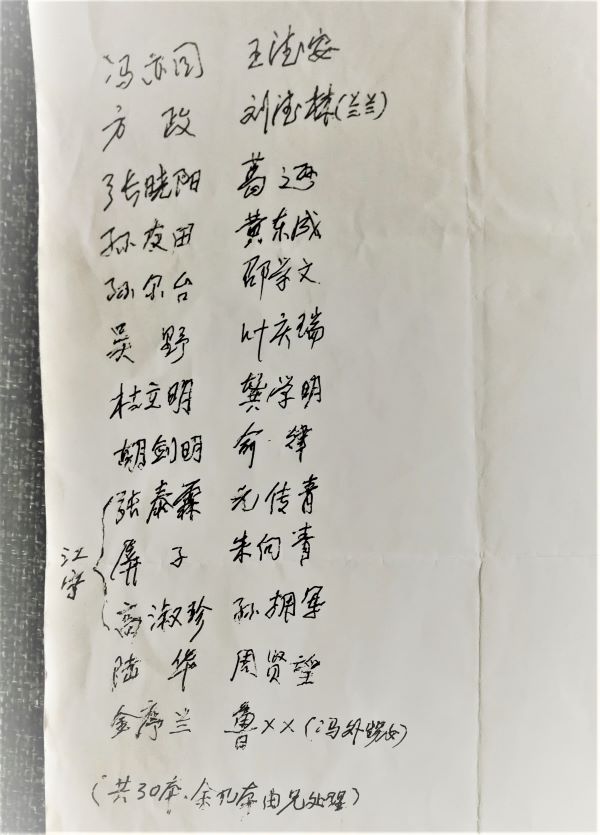 冯亦同 王德安
方政 刘德 (兰兰)
张晓阳 葛逊
孙友田 黄东成
孙尔台 邵学文
吴野 叶庆瑞
杜立明 龚学明
胡剑明 俞律
江宁 张泰霖 尤传青
屏子 朱向青
高淑珍 孙拥军
陆华 周贤望
金序兰 鲁×× (冯外甥女)
(共30本、余几本由兄处理)